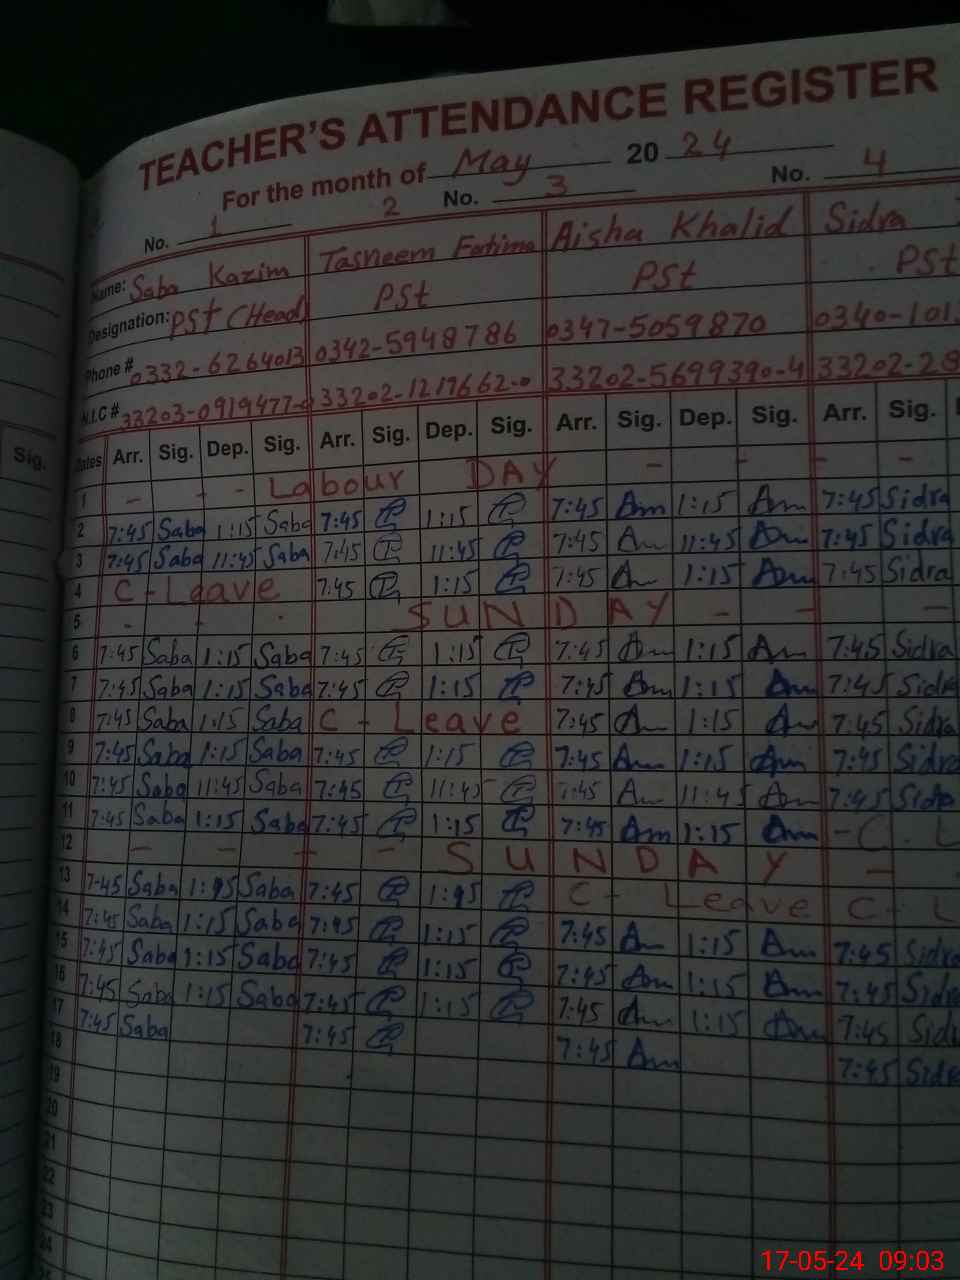 TEACHER'S ATTENDANCE REGISTER
For the month of May 2024
No. 1 2 No. 3 No. 4
Name: Saba Kazim Tasneem Fatima Aisha Khalid Sidra
Designation: PSt (Head) PSt PSt PSt
Phone # 0332-6264013 0342-5948786 0347-5059870 0340-101
N.I.C # 33203-0919477- 33202-1217662-0 33202-5699390-4 33202-28
Sig.
Dates Arr. Sig. Dep. Sig. Arr. Sig. Dep. Sig. Arr. Sig. Dep. Sig. Arr. Sig.
1 - - - Labour DAY - - - -
2 7:45 Saba 1:15 Saba 7:45 1:15 7:45 Am 1:15 Am 7:45 Sidra
3 7:45 Saba 11:45 Saba 7:45 11:45 7:45 Am 11:45 Am 7:45 Sidra
4 C-Leave 7:45 1:15 7:45 Am 1:15 Am 7:45 Sidra
5 - - - SUNDAY - - -
6 7:45 Saba 1:15 Saba 7:45 1:15 7:45 Am 1:15 Am 7:45 Sidra
7 7:45 Saba 1:15 Saba 7:45 1:15 7:45 Am 1:15 Am 7:45 Sidra
8 7:45 Saba 1:15 Saba C-Leave 7:45 Am 1:15 Am 7:45 Sidra
9 7:45 Saba 1:15 Saba 7:45 1:15 7:45 Am 1:15 Am 7:45 Sidra
10 7:45 Saba 11:45 Saba 7:45 11:45 7:45 Am 11:45 Am 7:45 Sidra
11 7:45 Saba 1:15 Saba 7:45 1:15 7:45 Am 1:15 Am - C. L
12 - - - - - SUNDAY -
13 7-45 Saba 1:15 Saba 7:45 1:15 C- Leave C- L
14 7:45 Saba 1:15 Saba 7:45 1:15 7:45 Am 1:15 Am 7:45 Sidra
15 7:45 Saba 1:15 Saba 7:45 1:15 7:45 Am 1:15 Am 7:45 Sidra
16 7:45 Saba 1:15 Saba 7:45 1:15 7:45 Am 1:15 Am 7:45 Sidra
17 7:45 Saba 7:45 7:45 Am 7:45 Sidra
18
19
20
21
22
23
24
17-05-24 09:03